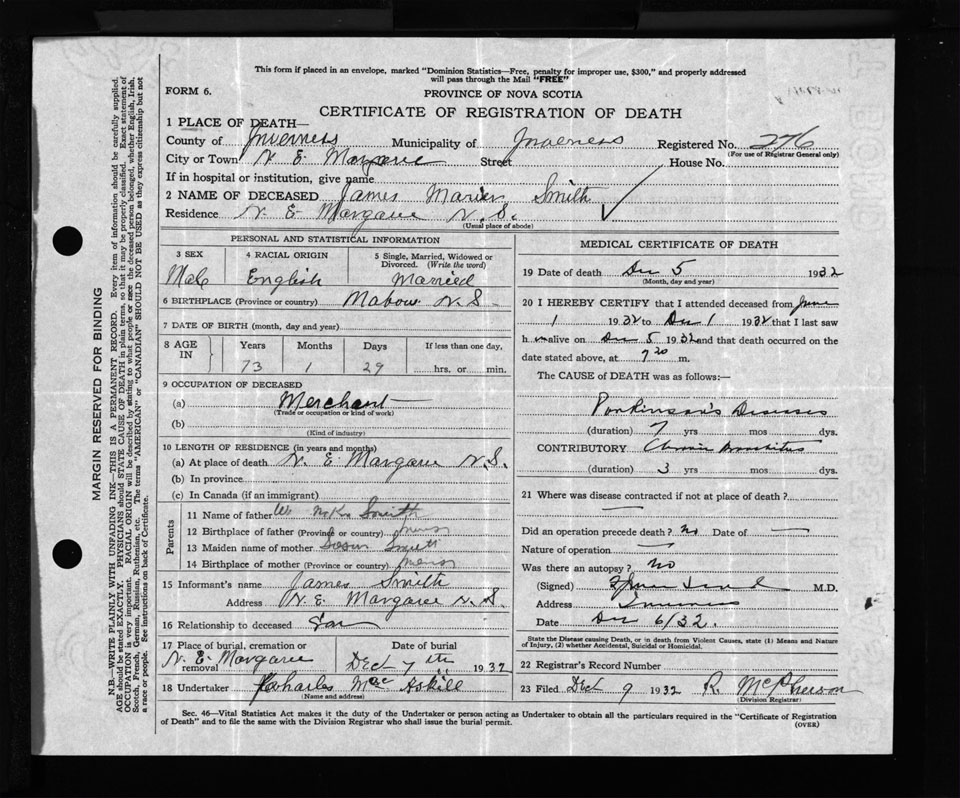 This form if placed in an envelope, marked "Dominion Statistics—Free, penalty for improper use, $300," and properly addressed
will pass through the Mail "FREE"
FORM 6.
PROVINCE OF NOVA SCOTIA
CERTIFICATE OF REGISTRATION OF DEATH
1 PLACE OF DEATH—
County of Inverness Municipality of Inverness Registered No. 276
(For use of Registrar General only)
City or Town N. E. Margaree Street House No.
If in hospital or institution, give name
2 NAME OF DECEASED James Smith
Residence N. E. Margaree N.S.
(Usual place of abode)
PERSONAL AND STATISTICAL INFORMATION
3 SEX 4 RACIAL ORIGIN 5 Single, Married, Widowed or
Divorced. (Write the word)
Male English Married
6 BIRTHPLACE (Province or country) Mabou N.S.
7 DATE OF BIRTH (month, day and year)
8 AGE IN Years Months Days If less than one day,
73 1 29 hrs. or min.
9 OCCUPATION OF DECEASED
(a) Merchant
(Trade or occupation or kind of work)
(b)
(Kind of industry)
10 LENGTH OF RESIDENCE (in years and months)
(a) At place of death N. E. Margaree N.S.
(b) In province
(c) In Canada (if an immigrant)
Parents
11 Name of father Smith
12 Birthplace of father (Province or country)
13 Maiden name of mother Smith
14 Birthplace of mother (Province or country)
15 Informant's name James Smith
Address N. E. Margaree N.S.
16 Relationship to deceased Son
17 Place of burial, cremation or
removal Date of burial
N. E. Margaree Dect 7th 1932
18 Undertaker Charles Mac Askill
(Name and address)
MEDICAL CERTIFICATE OF DEATH
19 Date of death Dec 5 1932
(Month, day and year)
20 I HEREBY CERTIFY that I attended deceased from June
1 1932 to Dec 1 1932 that I last saw
h im alive on Dec 5 1932 and that death occurred on the
date stated above, at 7 20 m.
The CAUSE of DEATH was as follows:—
Parkinson's Disease
(duration) 7 yrs mos dys.
CONTRIBUTORY Chronic Bronchitis
(duration) 3 yrs mos dys.
21 Where was disease contracted if not at place of death?
Did an operation precede death? No Date of —
Nature of operation —
Was there an autopsy? No
(Signed) M.D.
Address Inverness
Date Dec 6/32.
State the Disease causing Death, or in death from Violent Causes, state (1) Means and
Nature of Injury, (2) whether Accidental, Suicidal or Homicidal.
22 Registrar's Record Number
23 Filed Dect 9 1932 R. McPherson
(Division Registrar)
Sec. 46—Vital Statistics Act makes it the duty of the Undertaker or person acting as Undertaker to obtain all the particulars required in the "Certificate of Registration
of Death" and to file the same with the Division Registrar who shall issue the burial permit.
(OVER)
MARGIN RESERVED FOR BINDING
N.B.—WRITE PLAINLY WITH UNFADING INK—THIS IS A PERMANENT RECORD. Every item of information should be carefully supplied.
AGE should be stated EXACTLY. PHYSICIANS should STATE CAUSE OF DEATH in plain terms, so that it may be properly classified. Exact statement of
OCCUPATION is very important. RACIAL ORIGIN will be described by stating to what people or race the deceased person belonged, whether English, Irish,
Scotch, French, German, Russian, Ruthenian, etc. The terms "AMERICAN" or "CANADIAN" SHOULD NOT BE USED as they express citizenship but not
a race or people. See instructions on back of Certificate.